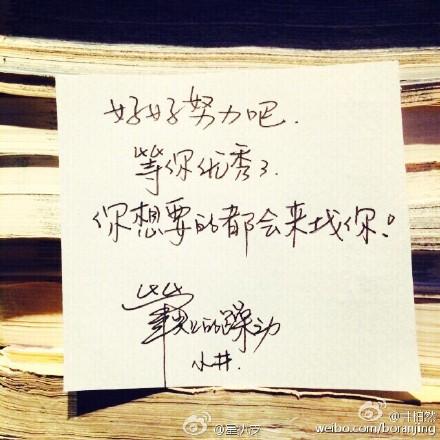 好好努力吧.
等你优秀了.
你想要的都会来找你!
筆尖上的躁动
小井.
@井柏然
weibo.com/boranjing